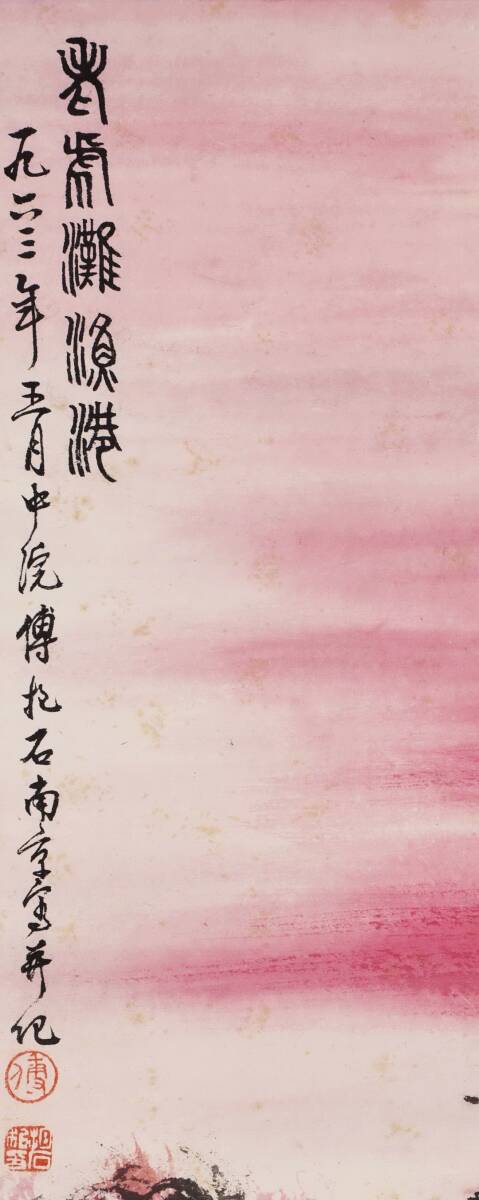 老虎灘漁港
一九六三年五月中浣傅抱石南京寫并記
傅
抱石